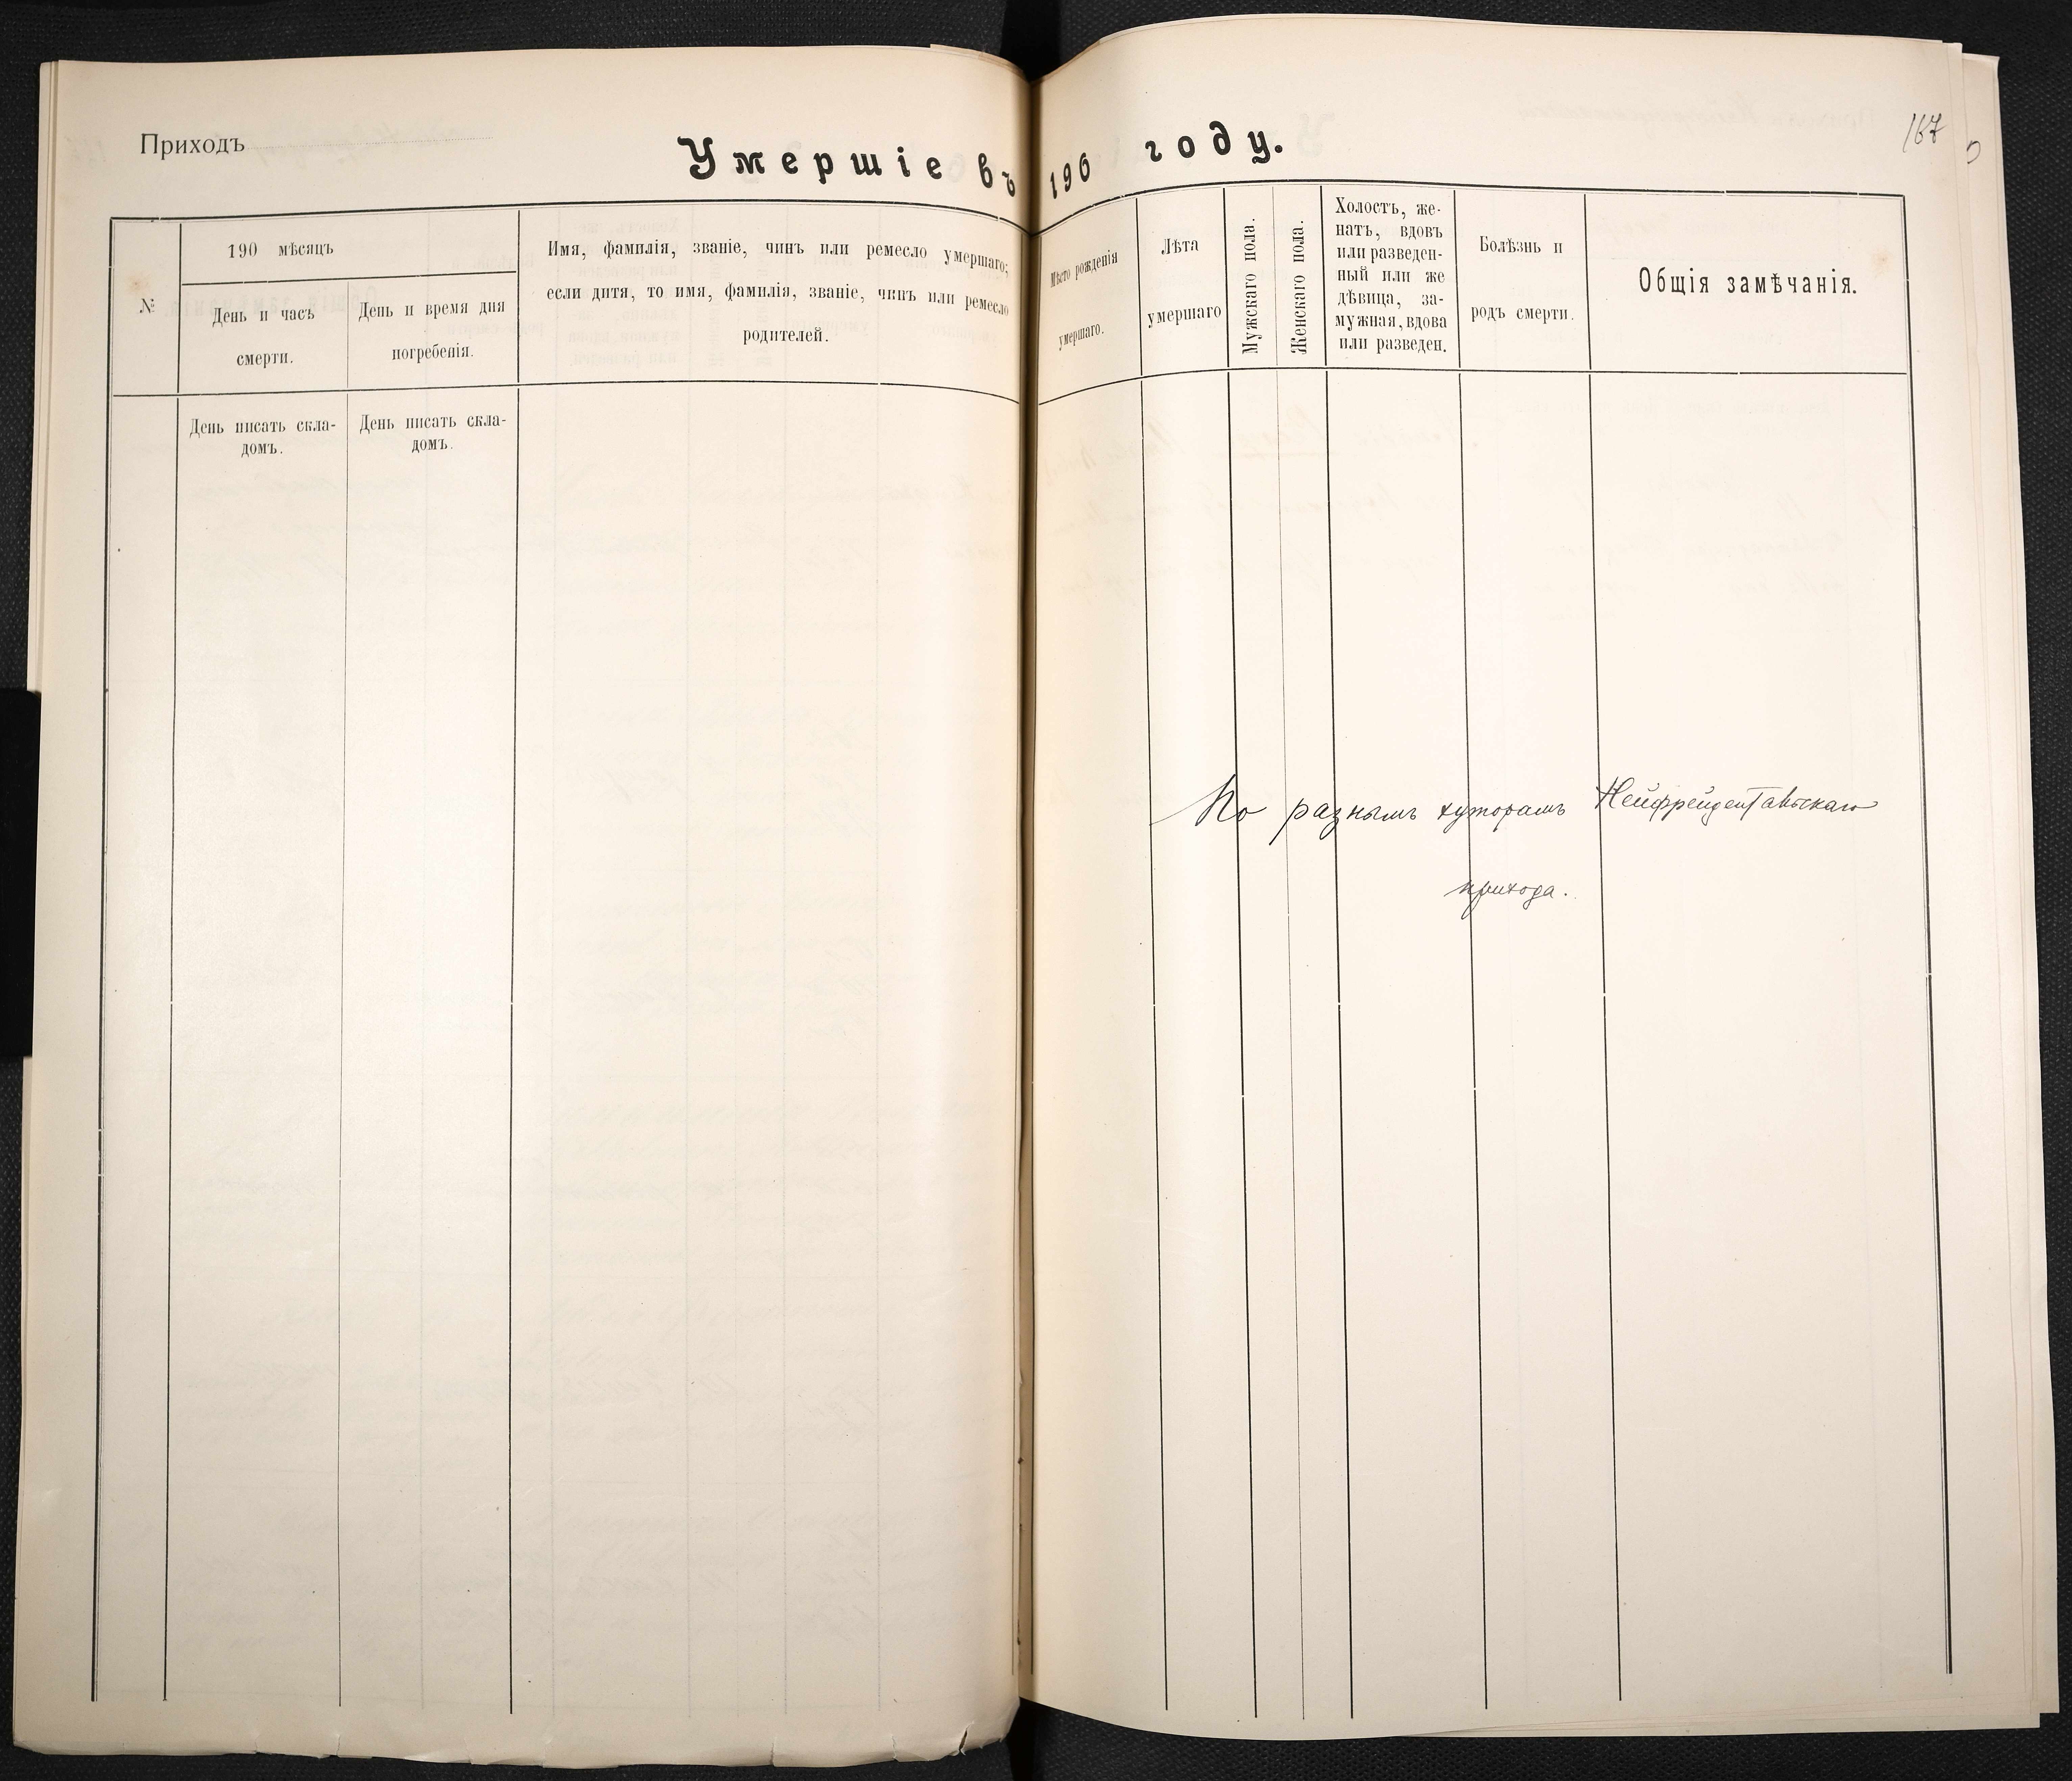 Приходъ
Умершіе въ 190 году.
167
№
190 мѣсяцъ
День и часъ
смерти.
День и время дня
погребенія.
Имя, фамилія, званіе, чинъ или ремесло умершаго;
если дитя, то имя, фамилія, званіе, чинъ или ремесло
родителей.
Мѣсто рожденія
умершаго.
Лѣта
умершаго
Мужскаго пола.
Женскаго пола.
Холостъ, же-
натъ, вдовъ
или разведен-
ный или же
дѣвица, за-
мужная, вдова
или разведен.
Болѣзнь и
родъ смерти.
Общія замѣчанія.
День писать скла-
домъ.
День писать скла-
домъ.
По разнымъ хуторамъ Нейфрейдентальскаго
прихода.